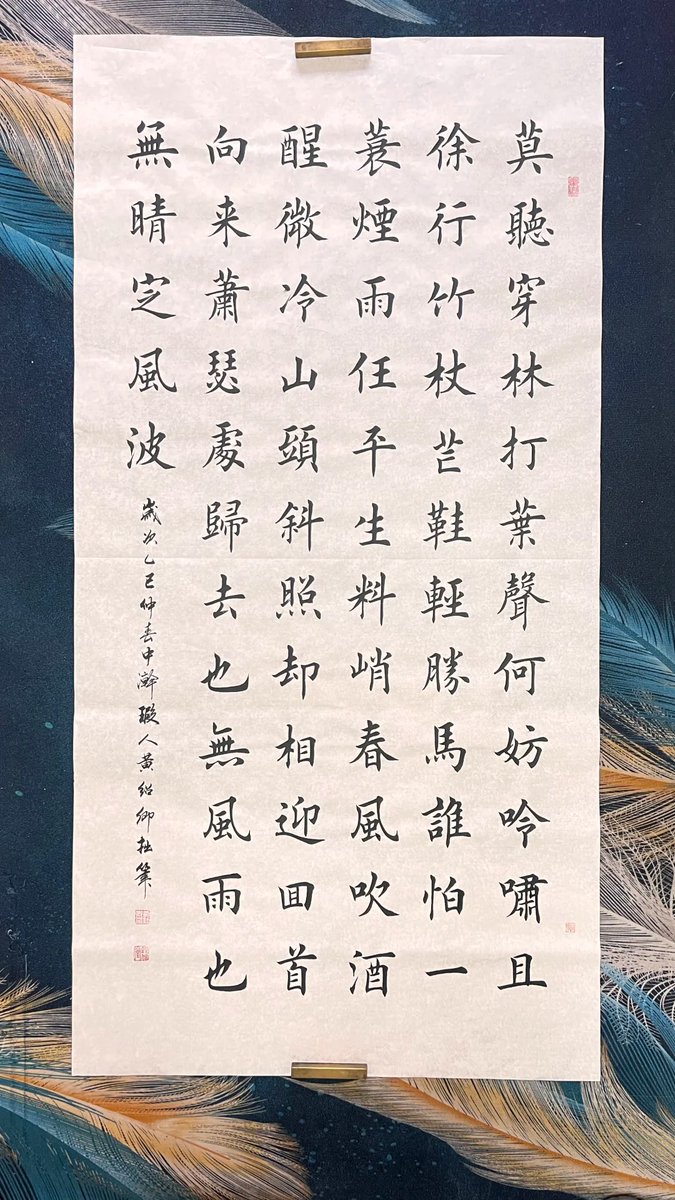 莫聽穿林打葉聲何妨吟嘯且
徐行竹杖芒鞋輕勝馬誰怕一
蓑煙雨任平生料峭春風吹酒
醒微冷山頭斜照却相迎回首
向来蕭瑟處歸去也無風雨也
無晴定風波
歲次乙巳仲春中澣瑖人黄紹卿拙筆